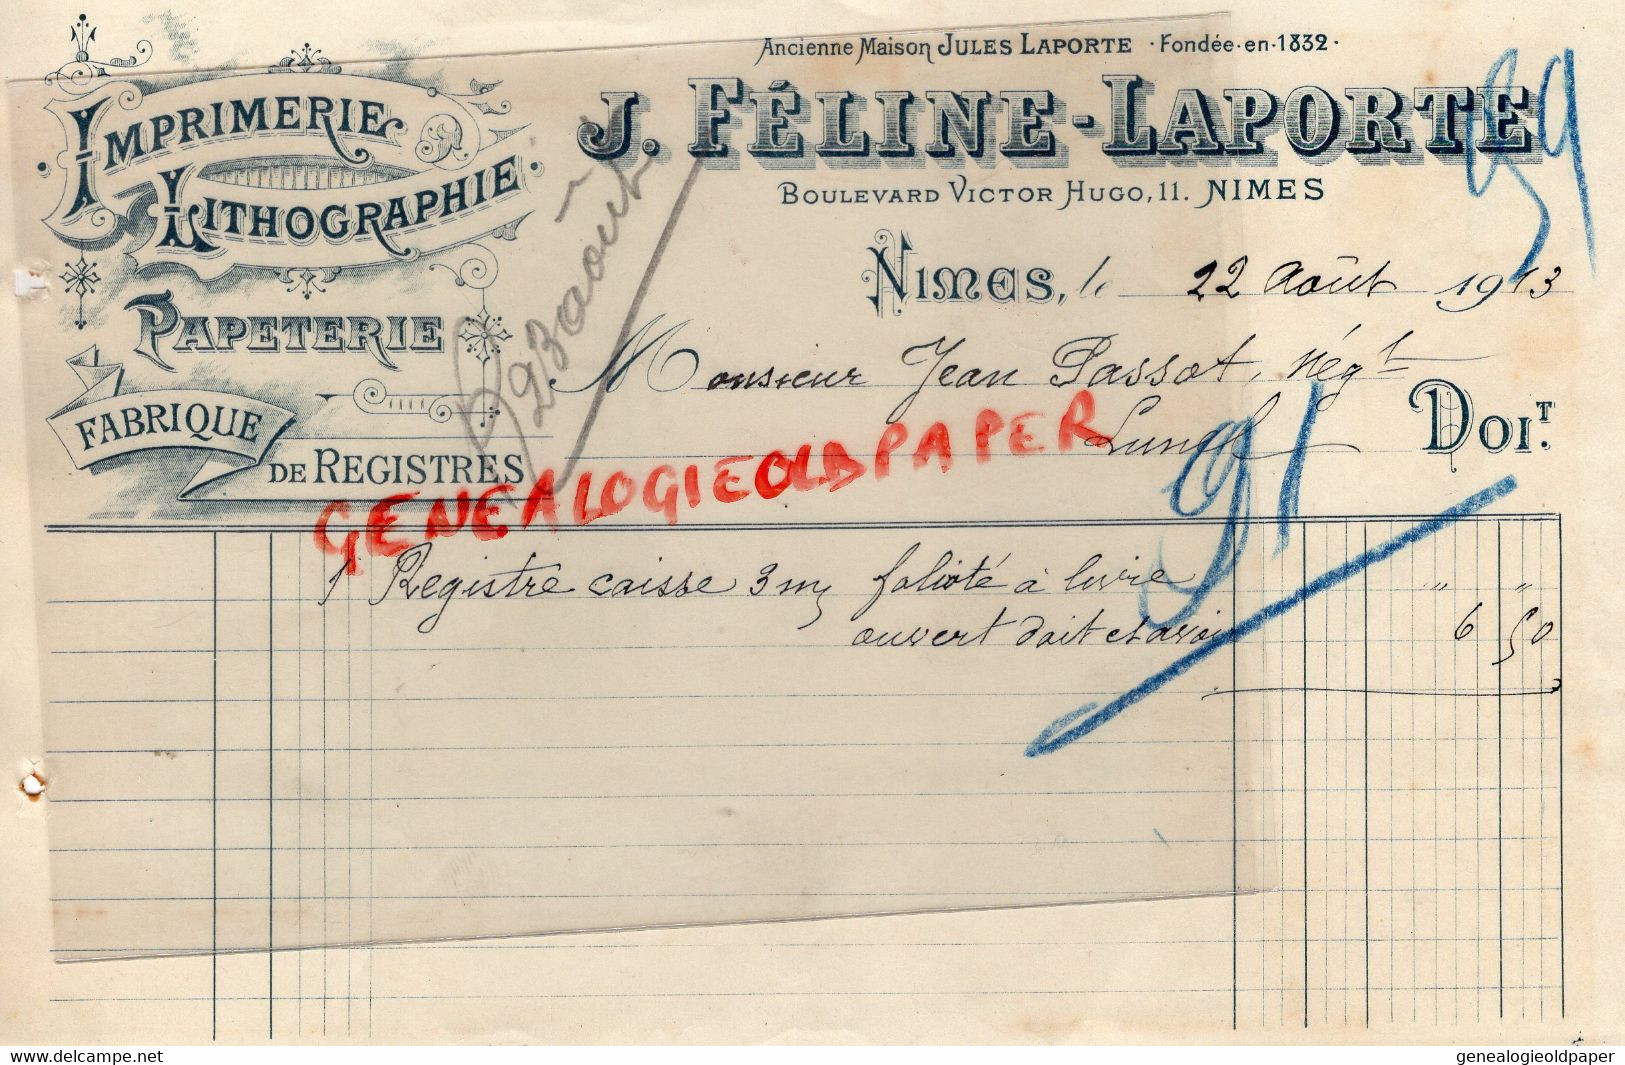 Ancienne Maison JULES LAPORTE · Fondée·en·1832·
J. FÉLINE-LAPORTE
BOULEVARD VICTOR HUGO, 11. NIMES
IMPRIMERIE
LITHOGRAPHIE
PAPETERIE
FABRIQUE
DE REGISTRES
NIMES, le 22 Août 1913
Monsieur Jean Passot, Nég^t
Lunel
DOIT.
59
91
23 août
GENEALOGIEOLDPAPER
1 Registre caisse 3 m/ folioté à livre " "
ouvert doit et avoir 6 50
www.delcampe.net
genealogieoldpaper